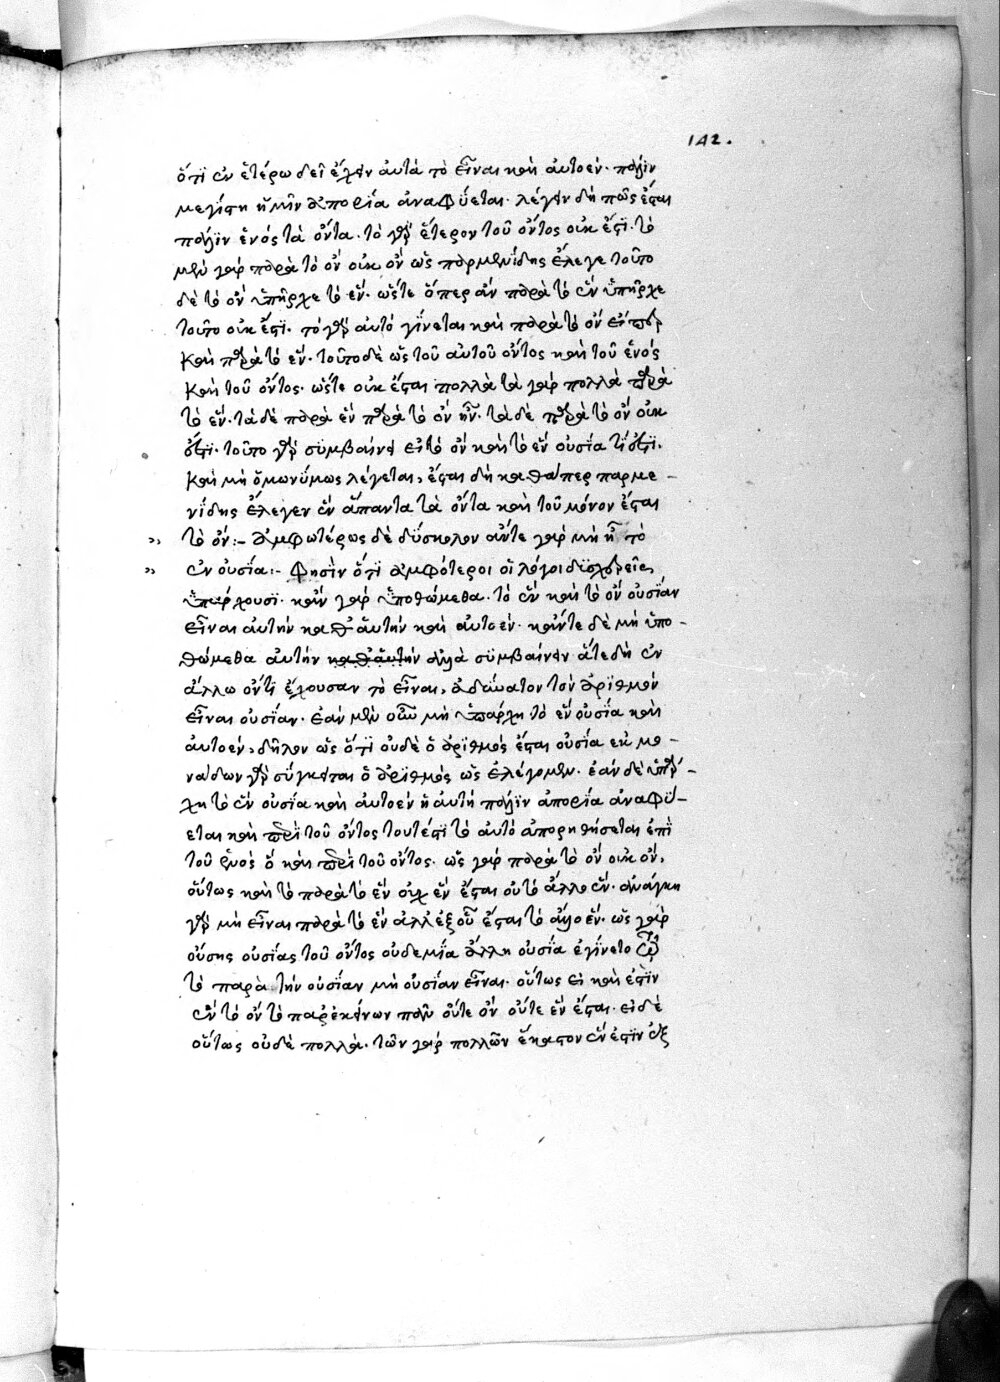 142.
ὅτι ἐν ἑτέρω δεῖ ἔχειν αὐτὰ τὸ εἶναι καὶ αὐτοέν. πάλιν
μεγίστη ἡμῖν ἀπορία ἀναφύεται. λέγειν δὴ πῶς ἔσται
πλεῖον ἑνός τὰ ὄντα. τὸ γὰρ ἕτερον τοῦ ὄντος οὐκ ἔστι. τὸ
μὲν γὰρ παρὰ τὸ ὂν οὐκ ὂν ὡς παρμενίδης ἔλεγε τοῦτο
δὲ τὸ ὂν ὑπῆρχε τὸ ἕν. ὥστε ὅπερ ἂν παρὰ τὸ ἓν ὑπῆρχε
τοῦτο οὐκ ἔστι. τὸ γὰρ αὐτὸ γίνεται καὶ παρὰ τὸ ὂν εἰπεῖν
καὶ παρὰ τὸ ἕν. τοῦτο δὲ ὡς τοῦ αὐτοῦ ὄντος καὶ τοῦ ἑνός
καὶ τοῦ ὄντος. ὥστε οὐκ ἔσται πολλὰ τὰ γὰρ πολλὰ παρὰ
τὸ ἕν. τὰ δὲ παρὰ ἓν παρὰ τὸ ὂν ἦν. τὰ δὲ παρὰ τὸ ὂν οὐκ
ἔστι. τοῦτο γὰρ συμβαίνει εἰ τὸ ὂν καὶ τὸ ἓν οὐσία τί ἐστι.
καὶ μὴ ὁμωνύμως λέγεται, ἔσται δὴ καθάπερ παρμε-
νίδης ἔλεγεν ἓν ἅπαντα τὰ ὄντα καὶ τοῦ μόνον ἔσται
τὸ ὄν:- ἀμφωτέρως δὲ δύσκολον ἄντε γὰρ μὴ ἦ τὸ
ἓν οὐσία:- φησὶν ὅτι ἀμφότεροι οἱ λόγοι δυσχερεῖς
ὑπάρχουσι. κἂν γὰρ ὑποθώμεθα. τὸ ἓν καὶ τὸ ὂν οὐσίαν
εἶναι αὐτὴν καθ' αὑτὴν καὶ αὐτοέν. κἄντε δὲ μὴ ὑπο-
θώμεθα αὐτὴν καθ' αὑτὴν ἀλλὰ συμβαίνειν ἅτε δὴ ἐν
ἄλλω ὄντι ἔχουσαν τὸ εἶναι, ἀδύνατον τὸν ἀριθμὸν
εἶναι οὐσίαν. ἐὰν μὲν οὖν μὴ ὑπάρχη τὸ ἓν οὐσία καὶ
αὐτοέν, δῆλον ὡς ὅτι οὐδὲ ὁ ἀριθμός ἔσται οὐσία ἐκ μο-
νάδων γὰρ σύγκειται ὁ ἀριθμός ὡς ἐλέγομεν. ἐὰν δὲ ὑπάρ-
χη τὸ ἓν οὐσία καὶ αὐτοέν ἡ αὐτὴ πάλιν ἀπορία ἀναφύ-
εται καὶ περὶ τοῦ ὄντος τουτέστι τὸ αὐτὸ ἀπορηθήσεται ἐπὶ
τοῦ ἑνός ὃ καὶ περὶ τοῦ ὄντος. ὡς γὰρ παρὰ τὸ ὂν οὐκ ὄν,
οὕτως καὶ τὸ παρὰ τὸ ἓν οὐχ ἓν ἔσται οὐ τὸ ἄλλο ἕν. ἀνάγκη
γὰρ μὴ εἶναι παρὰ τὸ ἓν ἀλλ' ἐξ οὗ ἔσται τὸ ἄλλο ἕν. ὡς γὰρ
οὔσης οὐσίας τοῦ ὄντος οὐδεμία ἄλλη οὐσία ἐγίνετο
τὸ παρὰ τὴν οὐσίαν μὴ οὐσίαν εἶναι. οὕτως εἰ καὶ ἐστὶν
ἓν τὸ ὂν τὸ παρ' ἐκείνων πάλιν οὔτε ὂν οὔτε ἓν ἔσται. εἰ δὲ
οὕτως οὐδὲ πολλά. τῶν γὰρ πολλῶν ἕκαστον ἕν ἐστὶν ἐξ